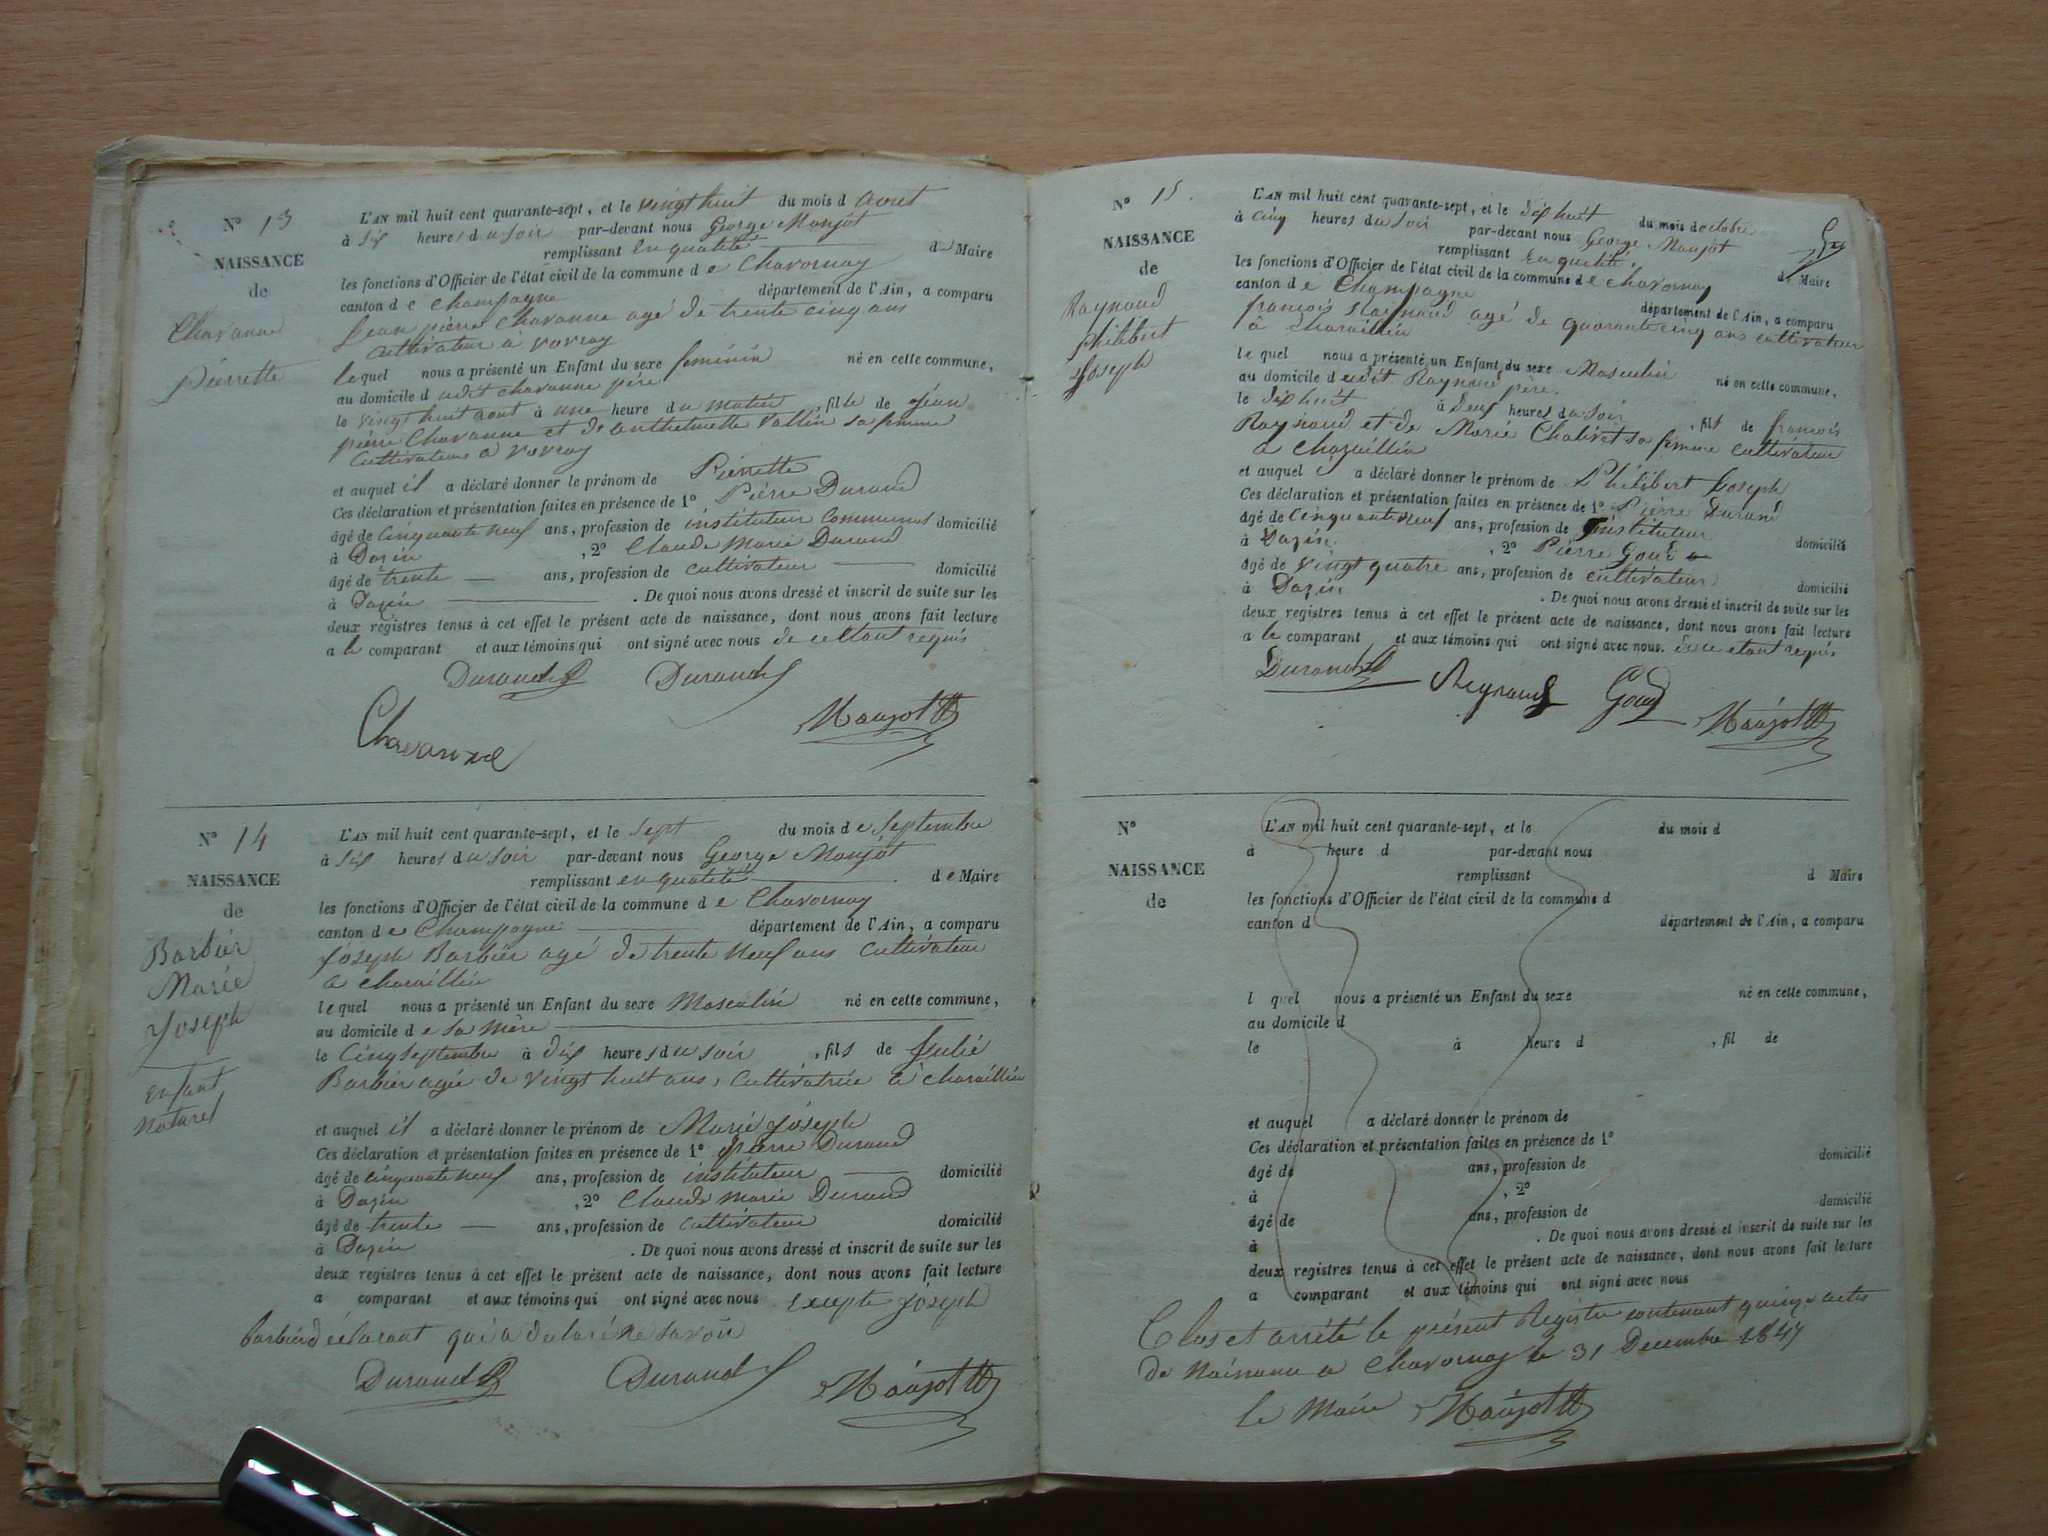 N° 13
NAISSANCE
de
Chavanne
Pierrette
L'AN mil huit cent quarante-sept, et le vingt huit du mois d aout
à six heures du soir par-devant nous George Maujot
remplissant en qualité de Maire
les fonctions d'Officier de l'état civil de la commune de Chavornay
canton de Champagne département de l'Ain, a comparu
Jean pierre Chavanne agé de trente cinq ans
cultivateur à vovray
lequel nous a présenté un Enfant du sexe feminin né en cette commune,
au domicile dudit chavanne père
le vingt huit aout à une heure du matin, fille de Jean
pierre Chavanne et de anthelmette Vallin sa femme
Cultivateurs à vovray
et auquel il a déclaré donner le prénom de Pierrette
Ces déclaration et présentation faites en présence de 1° Pierre Durand
âgé de cinquante neuf ans, profession de instituteur communal domicilié
à Dazin, 2° Claude Marie Durand
âgé de trente ans, profession de cultivateur domicilié
à Dazin. De quoi nous avons dressé et inscrit de suite sur les
deux registres tenus à cet effet le présent acte de naissance, dont nous avons fait lecture
a le comparant et aux témoins qui ont signé avec nous de ce etant requis
Durand Durand
Chavanne Maujot
N° 14
NAISSANCE
de
Barbier
Marie
Joseph
enfant
naturel
L'AN mil huit cent quarante-sept, et le sept du mois de septembre
à six heures du soir par-devant nous George Maujot
remplissant en qualité de Maire
les fonctions d'Officier de l'état civil de la commune de Chavornay
canton de Champagne département de l'Ain, a comparu
Joseph Barbier agé de trente neuf ans cultivateur
a charaillin
lequel nous a présenté un Enfant du sexe Masculin né en cette commune,
au domicile de sa mère
le cinq septembre à dix heures du soir, fils de Julie
Barbier agée de vingt huit ans, cultivatrice à charaillin
et auquel il a déclaré donner le prénom de Marie Joseph
Ces déclaration et présentation faites en présence de 1° Pierre Durand
âgé de cinquante neuf ans, profession de instituteur domicilié
à Dazin, 2° Claude marie Durand
âgé de trente ans, profession de cultivateur domicilié
à Dazin. De quoi nous avons dressé et inscrit de suite sur les
deux registres tenus à cet effet le présent acte de naissance, dont nous avons fait lecture
a comparant et aux témoins qui ont signé avec nous excepté Joseph
barbier déclarant qui a declaré ne savoir
Durand Durand Maujot
N° 15.
NAISSANCE
de
Raynaud
Philibert
Joseph
L'AN mil huit cent quarante-sept, et le dix huit du mois d octobre
à cinq heures du soir par-devant nous George Maujot
remplissant en qualité, d Maire
les fonctions d'Officier de l'état civil de la commune de chavornay
canton de Champagne département de l'Ain, a comparu
françois Raynaud agé de quarante cinq ans cultivateur
à Charaillin
lequel nous a présenté un Enfant du sexe Masculin né en cette commune,
au domicile dudit Raynaud père.
le dix huit à deux heures du soir, fils de françois
Raynaud et de Marie Chalivet sa femme cultivateur
a Charaillin
et auquel il a déclaré donner le prénom de Philibert Joseph
Ces déclaration et présentation faites en présence de 1° Pierre Durand
âgé de cinquante neuf ans, profession de instituteur domicilié
à Dazin, 2° Pierre Goud
âgé de vingt quatre ans, profession de cultivateur domicilié
à Dazin. De quoi nous avons dressé et inscrit de suite sur les
deux registres tenus à cet effet le présent acte de naissance, dont nous avons fait lecture
a le comparant et aux témoins qui ont signé avec nous. de ce etant requis
Durand Reynaud Goud Maujot
N°
NAISSANCE
de
L'AN mil huit cent quarante-sept, et le du mois d
à heure d par-devant nous
remplissant d Maire
les fonctions d'Officier de l'état civil de la commune d
canton d département de l'Ain, a comparu
l quel nous a présenté un Enfant du sexe né en cette commune,
au domicile d
le à heure d , fil de
et auquel a déclaré donner le prénom de
Ces déclaration et présentation faites en présence de 1°
âgé de ans, profession de domicilié
à , 2°
âgé de ans, profession de domicilié
à . De quoi nous avons dressé et inscrit de suite sur les
deux registres tenus à cet effet le présent acte de naissance, dont nous avons fait lecture
a comparant et aux témoins qui ont signé avec nous
Clos et arrêté le présent Registre contenant quinze actes
de Naissance a Chavornay le 31 Decembre 1847
le Maire Maujot